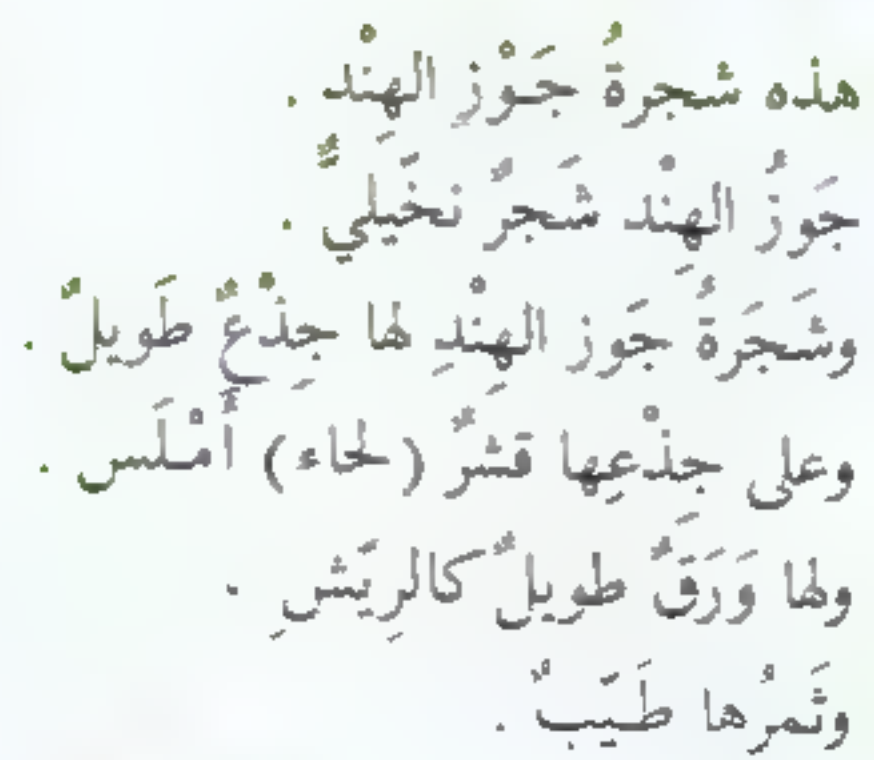 هذه شجرةُ جَوْزِ الهِنْد .
جَوزُ الهِنْد شَجرٌ نخَيَليٌّ .
وشَجَرَةُ جَوز الهِنْدِ لها جِذْعٌ طَويلٌ .
وعلى جِذْعِها قشرٌ (لحاء) أَمْلَس .
ولها وَرَقٌ طويلٌ كالرِيَشِ .
وثَمرُها طَيَبٌ .